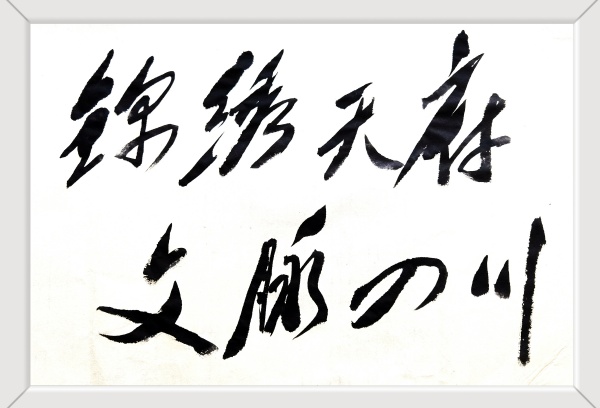 錦绣天府
文脉四川